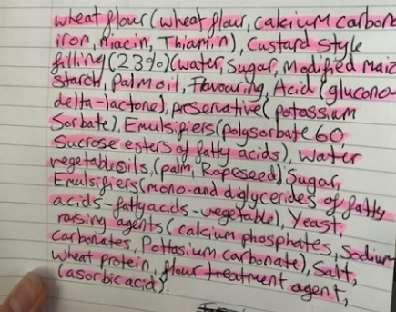 wheat flour (wheat flour, calcium carbon
iron, niacin, Thiamin), Custard Style
filling (23%) (water, Sugar, Modified Maiz
starch, Palm oil, Flavouring, Acid (glucono-
delta-lactone), preservative (potassium
Sorbate), Emulsifiers (polysorbate 60,
Sucrose esters of fatty acids), Water
vegetable oils, (palm, Rapeseed) Sugar,
Emulsifiers (mono-and diglycerides of fatty
acids-fatty acids-vegetable), Yeast,
raising agents (calcium phosphates, Sodium
carbonates, Pottasium carbonate), Salt,
wheat protein, flour treatment agent,
(asorbic acid)